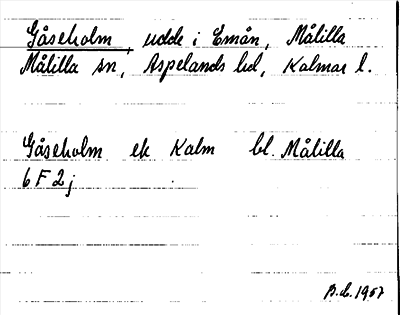 Gåseholm, udde i Emån, Målilla
Målilla sn, Aspelands hd, Kalmar l.
Gåseholm ek Kalm bl. Målilla
6 F 2 j
B.d. 1957